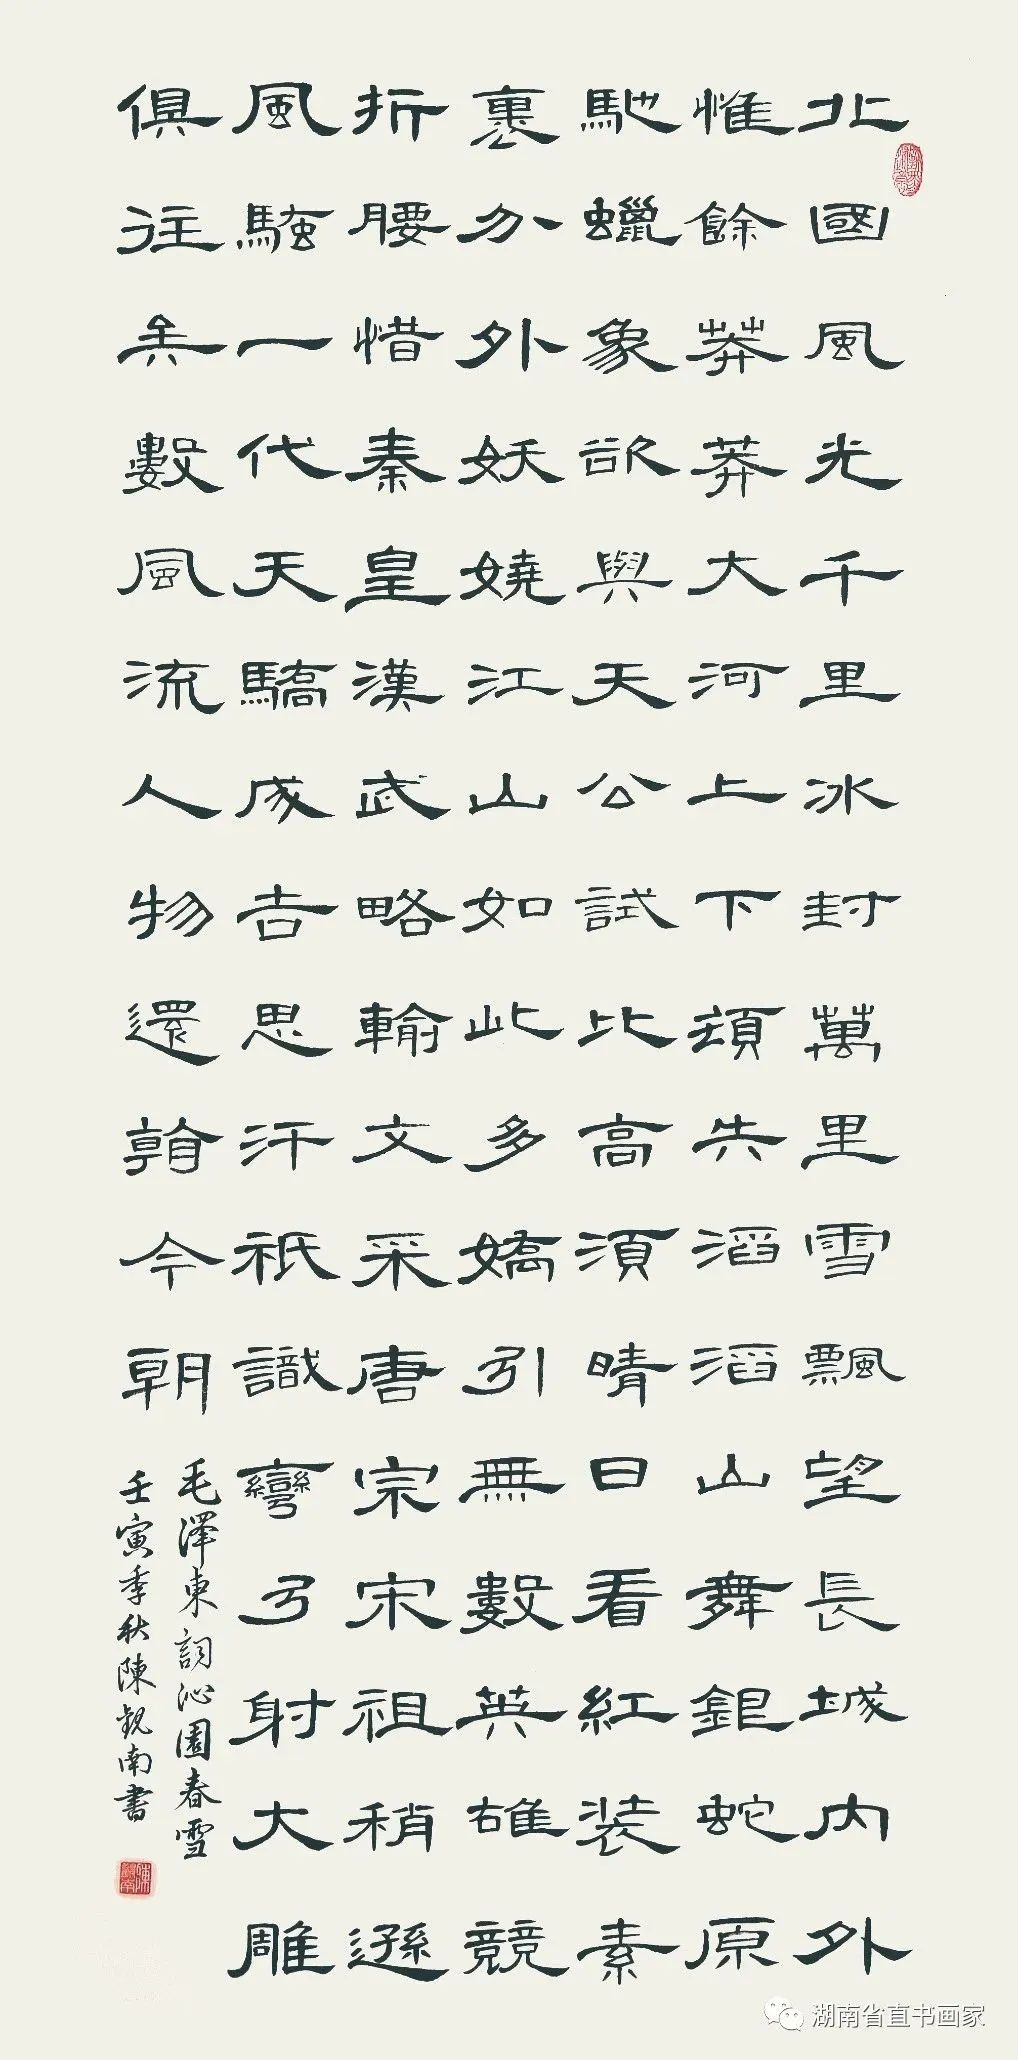 北國風光千里冰封萬里雪飄望長城內外
惟餘莽莽大河上下頓失滔滔山舞銀蛇原
馳蠟象欲與天公試比高須晴日看紅裝素
裹分外妖嬈江山如此多嬌引無數英雄競
折腰惜秦皇漢武略輸文采唐宗宋祖稍遜
風騷一代天驕成吉思汗祇識彎弓射大雕
俱往矣數風流人物還看今朝
毛澤東詞沁園春雪
壬寅季秋陳觀南書
湖南省直书画家